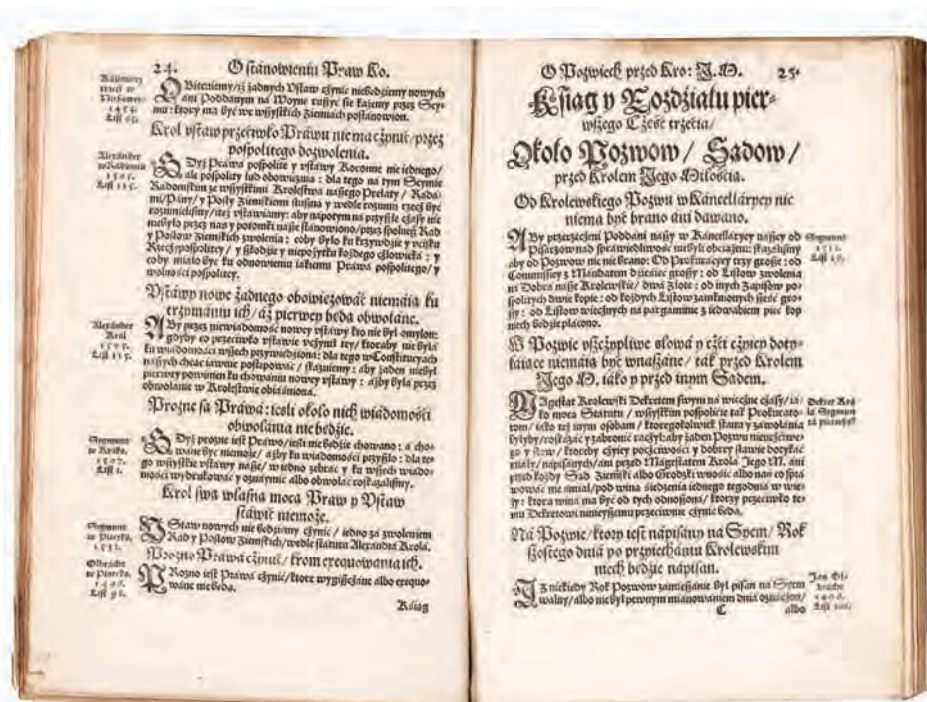 24. O stanowieniu Praw Ko.
Kazimierz
1454.
List 65.
OBiecuiemy/iż żadnych Vstaw czynić niebędziemy nowych
ani Poddanym na Woynę ruszyć sie każemy przez Sey-
mu: ktory ma być we wszystkich ziemiach postanowion.
Krol vstaw przeciwko Prawu nie ma czynić/przez
pospolitego dozwolenia.
Alexánder
w Radomiu
1505.
List 115.
GDyż Prawa pospolite y vstawy Koronne nie iednego/
ale pospolity lud obowięzuią: dla tego na tym Seymie
Radomskim ze wszystkimi Krolestwa naszego Prełaty/ Rada-
mi/Pany/y Posły Ziemskiemi słuszną y wedle rozumu rzecz być
rozumieliśmy/też vstawiamy: aby napotym na przyszłe czasy nic
niebyło przez nas y potomki nasze stanowiono/przez spolnego Rad
y Posłow Ziemskich zwolenia: coby było ku krzywdzie y vcisku
Rzeczypospolitey/ y szkodzie y niepożytku każdego człowieka: y
coby miało być ku odnowieniu iakiemu Prawa pospolitego/y
wolności pospolitey.
Vstawy nowe żadnego obowięzować niemaią ku
trzymaniu ich/áż pierwey będą obwołane.
Alexánder
Krol
1505.
List 115.
ABy przez niewiadomość nowey vstawy kto nie był omylon:
gdyby co przeciwko vstawie vczynił tey/ktoraby nie była
ku wiadomości wszech przywiedziona: dla tego w Constitucyach
naszych chcąc iawnie postępować/ skazuiemy: aby żaden niebył
pierwey powinien ku chowaniu nowey vstawy: ażby była przez
obwołanie w Krolestwie obiaśniona.
Prozne są Prawa: iesli około nich wiadomości
obwołania nie będzie.
Sigmunt
w Krako.
1507.
List 1.
GDyż prozne iest Prawo/iesli nie będzie chowano: a cho-
wane być niemoże/ ażby ku wiadomości przyszło: dla te-
go wszystkie vstawy nasze/ w iedno zebrać y ku wszech wiado-
mości wydrukować y oznaymić albo obwołać roskazaliśmy.
Krol swą własną mocą Praw y Vstaw
stawić niemoże.
Sigmunt
w Piotrko.
1511.
VStaw nowych nie będziemy czynić/ iedno za zwoleniem
Rad y Posłow Ziemskich/wedle statutu Alexandra Krola.
Prozno Prawa czynić/ krom exequowania ich.
Olbracht
w Piotrko.
1496.
List 96.
PRozno iest Prawa czynić/ktore wyciszczane albo exequo-
wane nie będą.
Kśiąg
O Pozwiech przed Kro: J. M. 25.
Kśiąg y Rozdziału pier-
wszego Część trzecia/
Około Pozwow/ Sądow/
przed Krolem Jego Miłością.
Od Krolewskiego Pozwu w Kancellaryey nic
niema być brano ani dawano.
Sigmunt
1511.
List 19.
ABy przerzeczeni Poddani naszy w Kancellaryey naszey od
Pisarzow nad sprawiedliwość niebyli obciążeni: skazaliśmy
aby od Pozwow nic nie brano: Od Prokuracyey trzy grosze: od
Commissiey z Mandatem dziesięć groszy: od Listow zwolenia
na Dobra nasze Krolewskie/ dwa złote: od inych Zapisow po-
spolitych dwie kopie: od kożdych Listow zamknionych sześć gro-
szy: od Listow wiecznych na pargaminie z iedwabiem pięć kop
niech będzie płacono.
W Pozwie vszczypliwe słowa y czći czyiey doty-
kaiące niemaią być wnaszane/ tak przed Krolem
Jego M. iako y przed innym Sądem.
Dekret Kro-
la Sigmun
ta pierwszy
MAgestat Krolewski Dekretem swym na wieczne czasy/ia-
ko mocą Statutu/ wszystkim pospolicie tak Prokurato-
rom/ iako też inym osobam/ ktoregokolwiek stanu y zawołania
byłyby/roskazać y zabronić raczył: aby żaden Pozwu nieuczciwe-
go y słow/ ktoreby czyiey poczciwości y dobrey sławie dotykać
miały/ napisanych/ani przed Magestatem Krola Jego M. ani
przed kożdy Sąd Ziemski albo Grodzki wnosić albo nań co spra
wować nie śmiał/pod winą siedzenia iednego tegodnia w wie-
ży: ktora wina ma być od tych odnoszona/ ktorzy przeciwko te-
mu Dekretowi ninieyszemu przeciwne czynić będą.
Na Pozwie/ktory iest napisany na Syem/ Rok
szostego dnia po przyiechaniu Krolewskim
niech będzie napisan.
Jan Ol-
bracht
1496.
List 100.
IŻ niekiedy Rok Pozwow zamieszanie był pisan na Syem
walny/albo nie był pewnym mianowaniem dnia oznaczon/
C albo